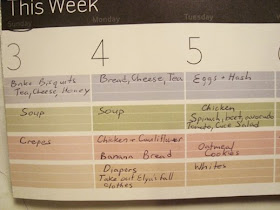 This Week
Tuesday
3
4
5
Bake Bisquits
Tea, Cheese, Honey
Bread, Cheese, Tea
Eggs + Hash
Soup
Soup
Chicken
Spinach, beet, avocado
Tomato, Cuke Salad
Crepes
Chicken + Cauliflower
Banana Bread
Oatmeal
Cookies
Diapers
Take out Elyn's fall
Clothes
Whites